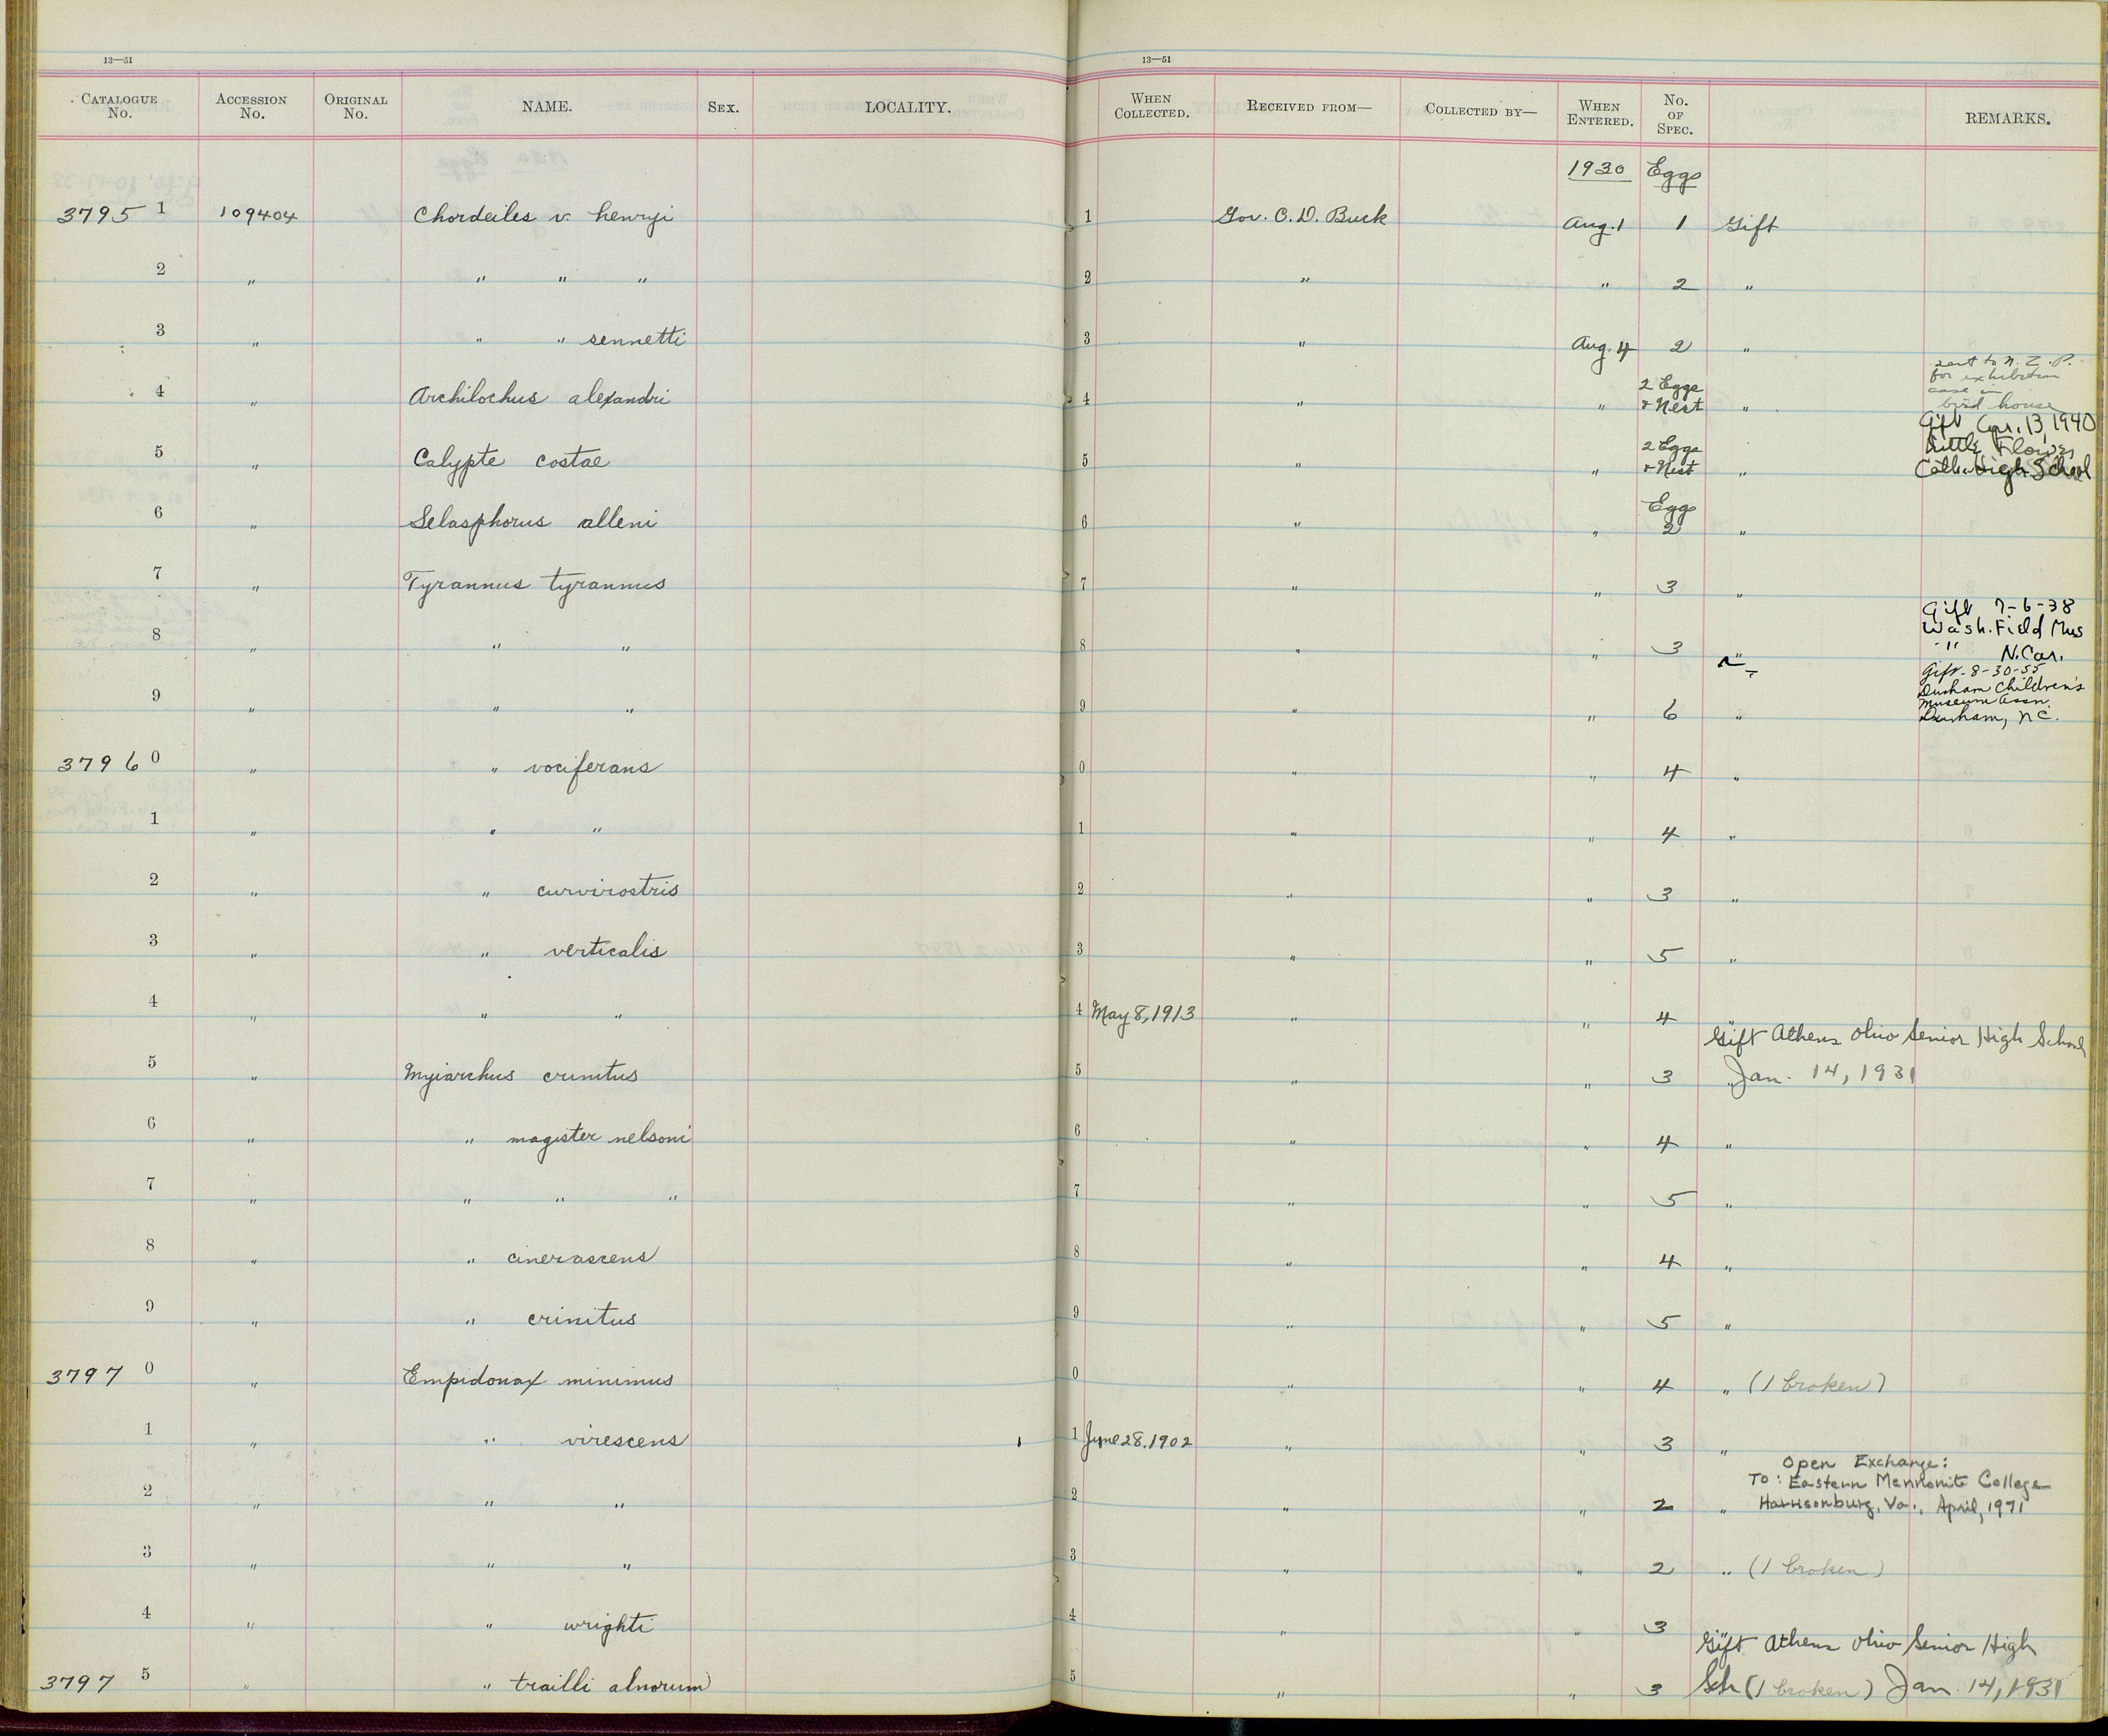 13—51 13—51
CATALOGUE No. ACCESSION No. ORIGINAL No. NAME. SEX. LOCALITY. WHEN COLLECTED. RECEIVED FROM— COLLECTED BY— WHEN ENTERED. No. OF SPEC. REMARKS.
1930 Eggs
3795 1 109404 Chordeiles v. henryi 1 Gov. C. D. Buck Aug. 1 1 Gift
2 " " " " 2 " " 2 "
3 " " " sennetti 3 " Aug. 4 2 "
sent to N. Z. P.
for exhibition
case in
bird house
4 " Archilochus alexandri 4 " " 2 Eggs & Nest "
Gift Apr. 13, 1940
Little Flower
Cath. High School
5 " Calypte costae 5 " " 2 Eggs & Nest "
6 " Selasphorus alleni 6 " " Eggs 2 "
7 " Tyrannus tyrannus 7 " " 3 "
Gift 7-6-38
Wash. Field Mus
" N. Car.
8 " " " 8 " " 3 "
Gift-8-30-55
Durham Children's
Museum Assn.
Durham, N.C.
9 " " " 9 " " 6 "
3796 0 " " vociferans 0 " " 4 "
1 " " " 1 " " 4 "
2 " " curvirostris 2 " " 3 "
3 " " verticalis 3 " " 5 "
4 " " " 4 May 8, 1913 " " 4 "
Gift Athens Ohio Senior High School
5 " Myiarchus crinitus 5 " " 3 " Jan. 14, 1931
6 " " magister nelsoni 6 " " 4 "
7 " " " " 7 " " 5 "
8 " " cinerascens 8 " " 4 "
9 " " crinitus 9 " " 5 "
3797 0 " Empidonax minimus 0 " " 4 " (1 broken)
1 " " virescens 1 June 28, 1902 " " 3 "
Open Exchange:
To: Eastern Mennonite College
Harrisonburg, Va., April, 1971
2 " " " 2 " " 2 "
3 " " " 3 " " 2 " (1 broken)
4 " " wrighti 4 " " 3 "
Gift Athens Ohio Senior High
3797 5 " " trailli alnorum 5 " " 3 Sch (1 broken) Jan. 14, 1931